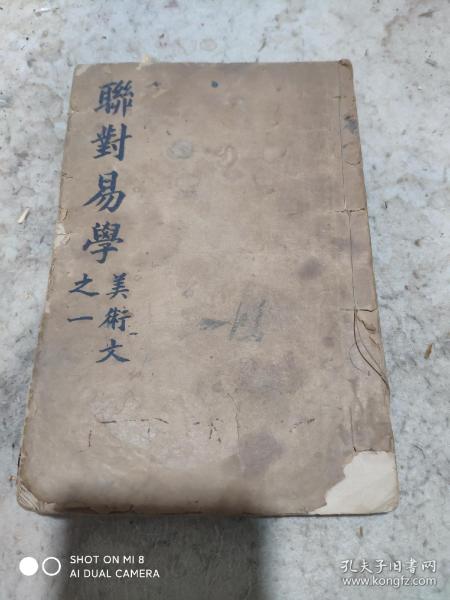 聯對易學
美術文
之一
SHOT ON MI 8
AI DUAL CAMERA
孔夫子旧书网
www.kongfz.com